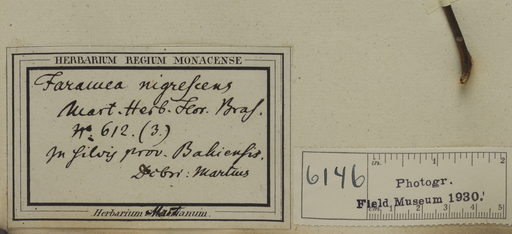 HERBARIUM REGIUM MONACENSE
Faramea nigrescens
Mart. Herb. Flor. Bras.
No. 612. (3.)
In silvis prov. Bahiensis.
Martius
Herbarium Martianum.
6146
in. 1 2
Photogr.
Field Museum 1930.
cm 1 2 3 4 5